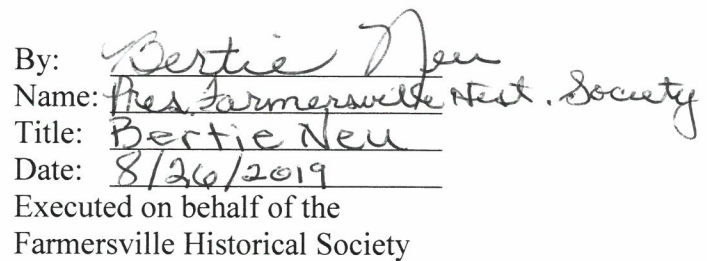 By: Bertie Neu
Name: Pres. Farmersville Hist. Society
Title: Bertie Neu
Date: 8/26/2019
Executed on behalf of the
Farmersville Historical Society